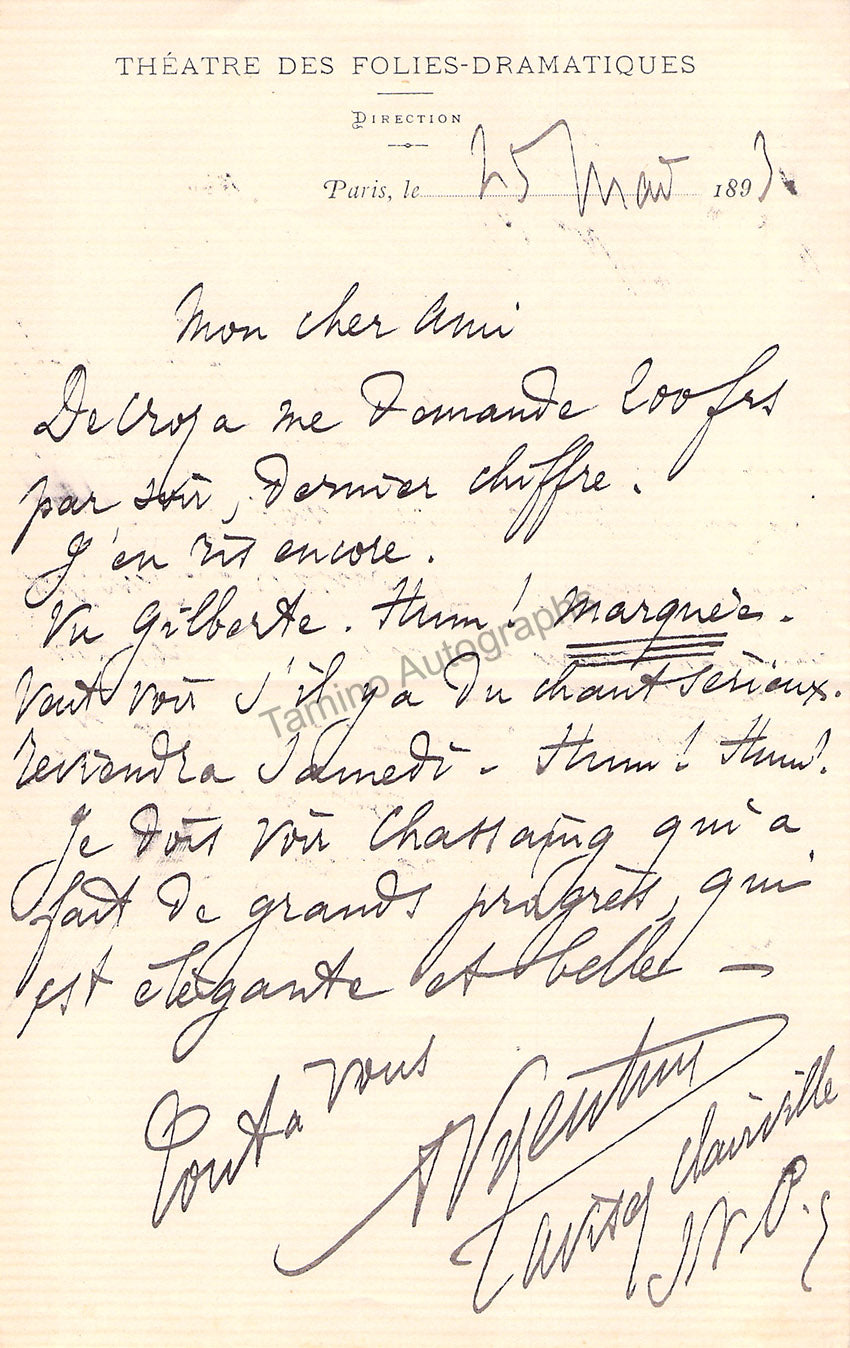 THÉATRE DES FOLIES-DRAMATIQUES
DIRECTION
Paris, le 25 Mai 1893
Mon cher Ami
Decroza me demande 200 frs
par soir, dernier chiffre.
J'en ris encore.
Vu Gilberte. Hum! marquée.
Veut voir s'il y a du chant sérieux.
reviendra Samedi - Hum! Hum!
Je dois voir Chassaing qui a
fait de grands progrès, qui
est élégante et belle —
Tout à vous
AVizentini
avisez Clairville
S.V.P.
Tamino Autographs